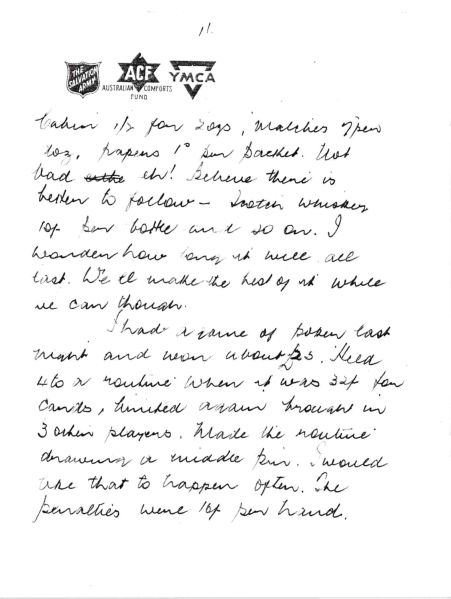 11.
THE SALVATION ARMY
ACF
AUSTRALIAN COMFORTS FUND
YMCA
1/2 for 2ozs, matches 7 per
doz, papers 1d per packet. Not
bad eh! Believe there is
better to follow – Scotch whiskey
10/- per bottle and so on. I
wonder how long it will all
last. We'll make the best of it while
we can though.
I had a game of poker last
night and won about £23. Held
4 to a routine when it was 32/- for
cards, limited again brought in
3 other players. Made the routine
drawing a middle pin. I would
like that to happen often. The
penalties were 10/- per hand.